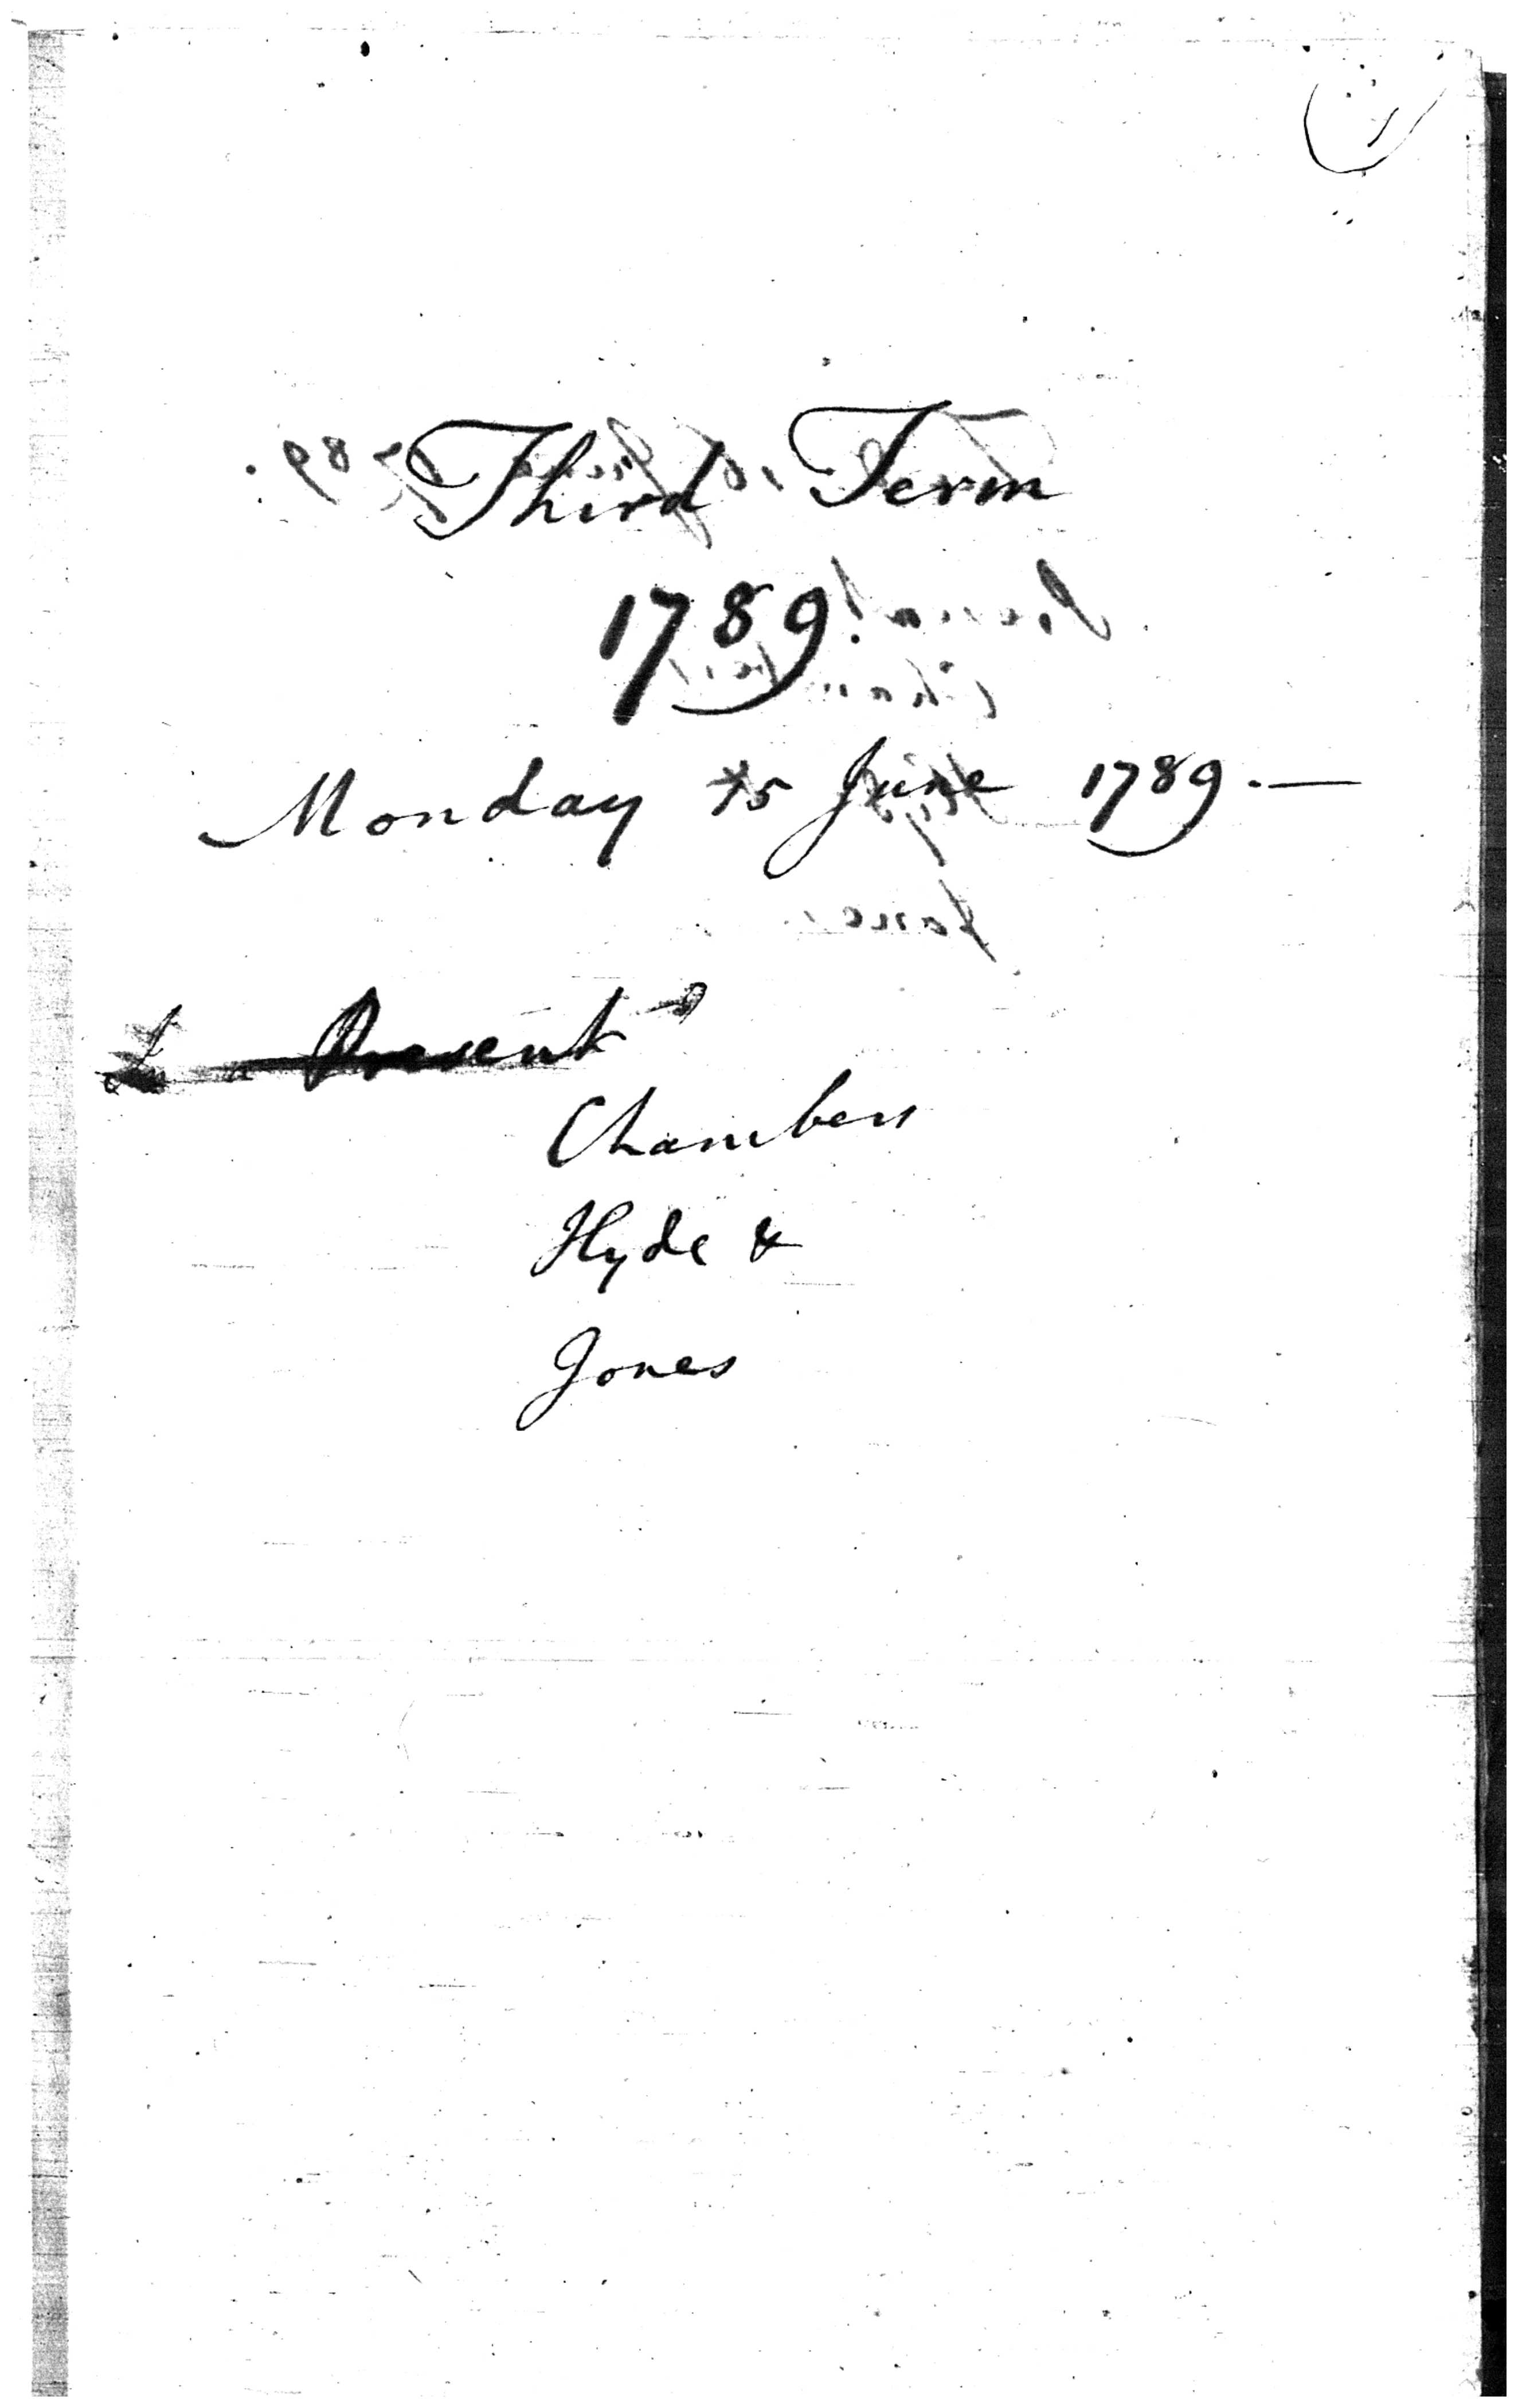 Third Term
1789.
Monday 15 June 1789.—
Present
Chambers
Hyde &
Jones